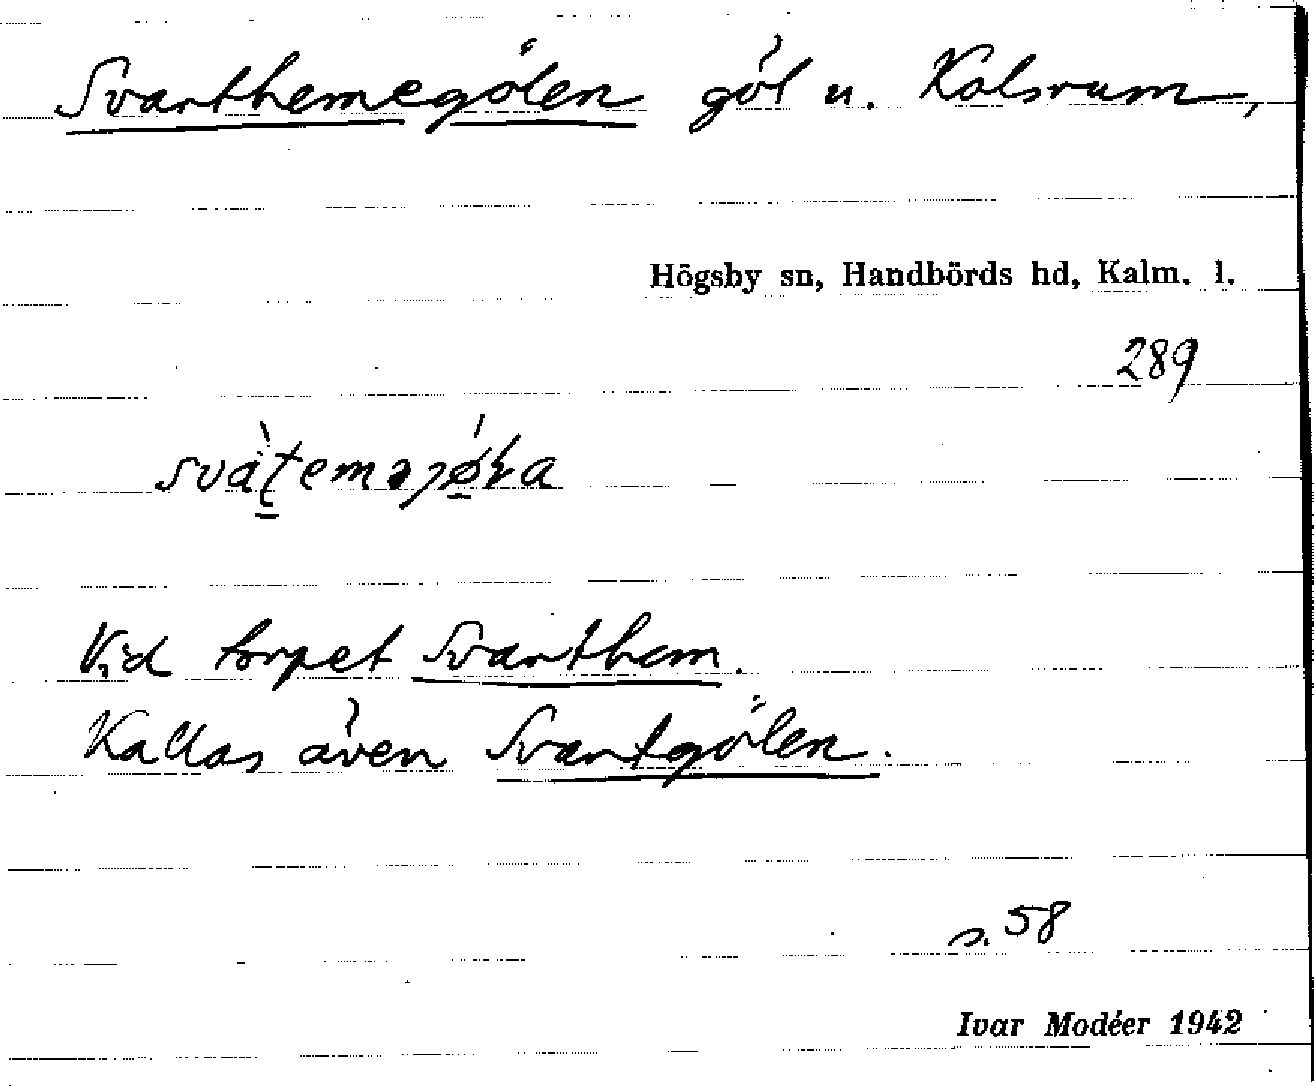 Svarthemegölen göl u. Kalsrum,
Högsby sn, Handbörds hd, Kalm. l.
289
Vid torpet Svarthem.
Kallas även Svartgölen.
s. 58
Ivar Modéer 1942